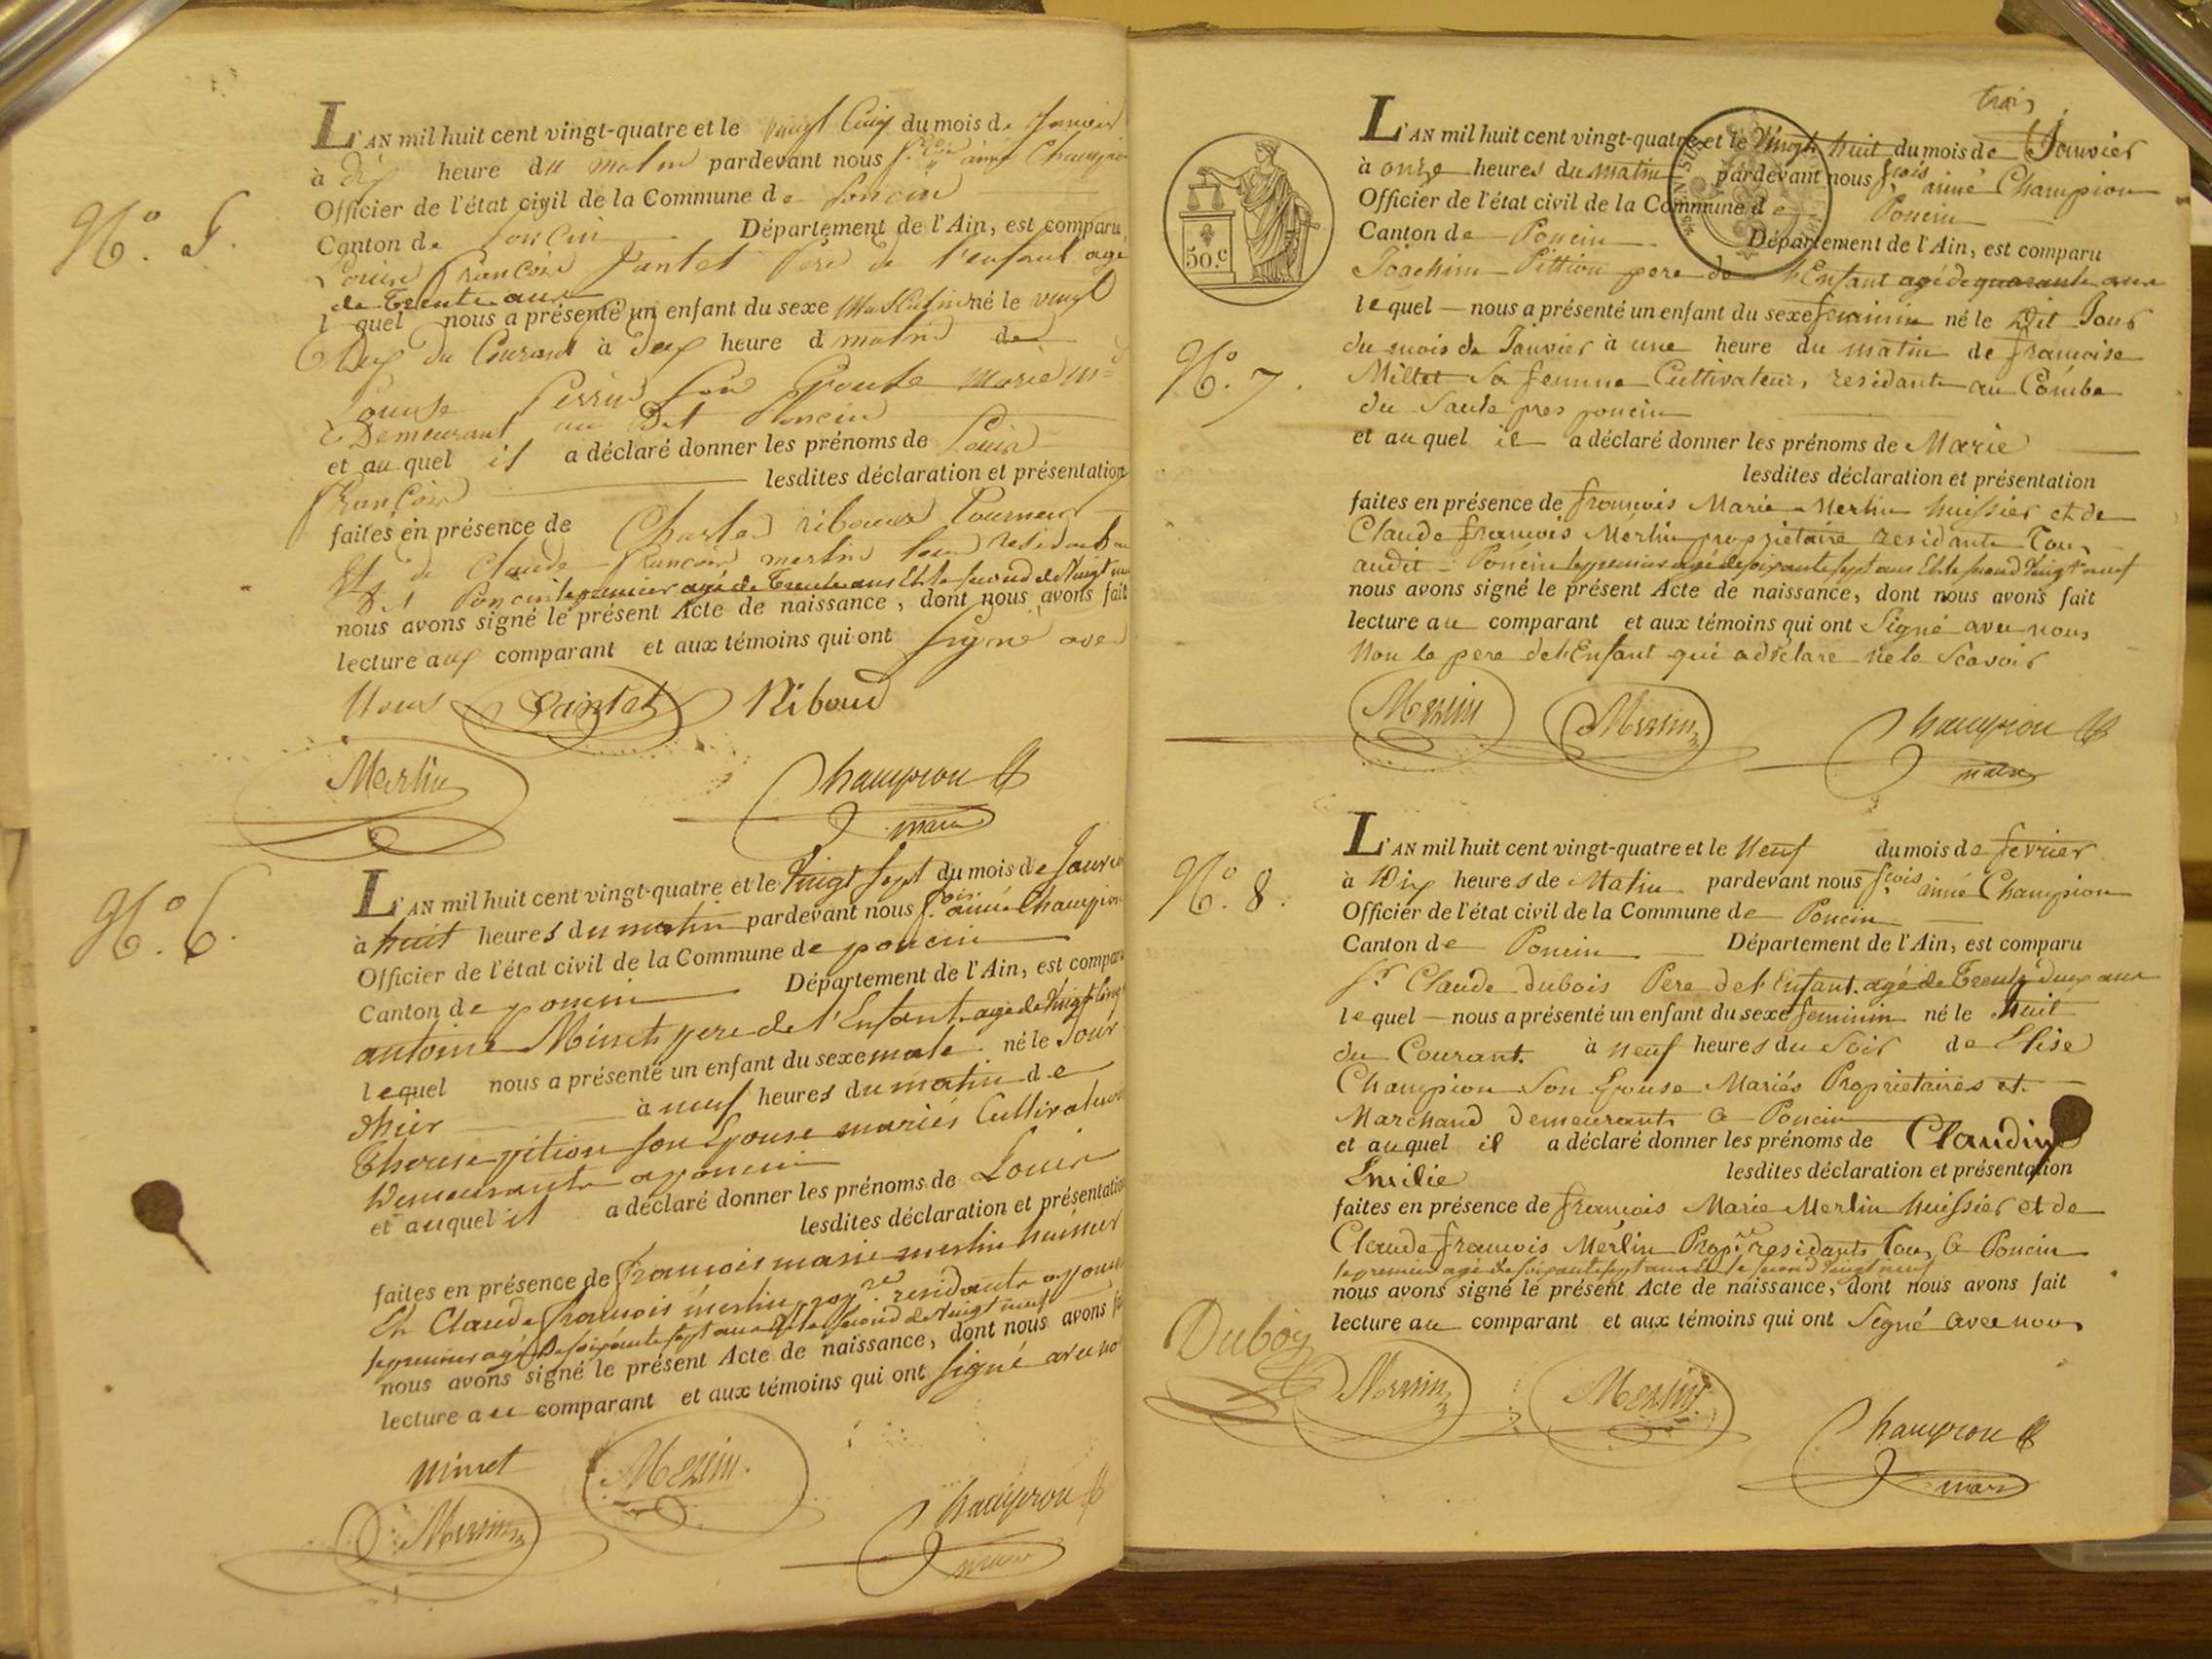 N.° 5.
L'AN mil huit cent vingt-quatre et le vingt Cinq du mois de Janvier
à dix heure du matin pardevant nous f.ois aimé Champion
Officier de l'état civil de la Commune de Poncin
Canton de Poncin Département de l'Ain, est comparu
Louis François Jantet Pere de l'enfant agé
de trente ans
lequel nous a présenté un enfant du sexe Masculin né le vingt
du Courant à heure d matin de
Louise Perrin son Epouse
Demeurant au Dit Poncin
et au quel il a déclaré donner les prénoms de Louis
François lesdites déclaration et présentation
faites en présence de Charles riboud Tourneur
Et de Claude François merlin
Poncin le premier agé de trente ans Et le second de Vingt neuf
nous avons signé le présent Acte de naissance, dont nous avons fait
lecture aux comparant et aux témoins qui ont signé avec
Nous Jantet Riboud
Merlin Champion
maire
N.° 6.
L'AN mil huit cent vingt-quatre et le Vingt sept du mois de Janvier
à huit heures du matin pardevant nous f.ois aimé Champion
Officier de l'état civil de la Commune de poncin
Canton de poncin Département de l'Ain, est comparu
antoine Minet pere de l'Enfant agé de Vingt Cinq
lequel nous a présenté un enfant du sexe male né le Jour
d'hier à neuf heures du matin de
Therese pition son Epouse mariés Cultivateurs
Demeurants a poncin
et auquel il a déclaré donner les prénoms de Louis
lesdites déclaration et présentation
faites en présence de francois marie merlin huissier
Et Claude francois merlin prop.re residants a poncin
le premier agé de soixante sept ans Et le second de Vingt neuf
nous avons signé le présent Acte de naissance, dont nous avons fait
lecture au comparant et aux témoins qui ont signé avec nous
minet Merlin
Merlin Champion
maire
trois
50.c
N.° 7.
L'AN mil huit cent vingt-quatre et le Vingt huit du mois de Janvier
à onze heures du matin pardevant nous f.ois aimé Champion
Officier de l'état civil de la Commune de Poncin
Canton de Poncin Département de l'Ain, est comparu
Joachim Pittion pere de l'Enfant agé de quarante ans
lequel nous a présenté un enfant du sexe feminin né le Dit Jour
du mois de Janvier à une heure du matin de francoise
Millet Sa femme Cultivateurs, residants au Combe
du Saule pres poncin
et au quel il a déclaré donner les prénoms de Marie
lesdites déclaration et présentation
faites en présence de francois Marie Merlin huissier et de
Claude francois Merlin propriétaire residants Tous
audit Poncin le premier agé de soixante sept ans Et le second Vingt neuf
nous avons signé le présent Acte de naissance, dont nous avons fait
lecture au comparant et aux témoins qui ont Signé avec nous
Non le pere de l'Enfant qui a déclaré ne le Scavoir
Merlin Merlin Champion
maire
N.° 8.
L'AN mil huit cent vingt-quatre et le Neuf du mois de fevrier
à Dix heures de Matin pardevant nous f.ois aimé Champion
Officier de l'état civil de la Commune de Poncin
Canton de Poncin Département de l'Ain, est comparu
S.r Claude dubois Pere de l'Enfant agé de Trente deux ans
lequel nous a présenté un enfant du sexe feminin né le huit
du Courant à neuf heures du Soir de Elise
Champion Son Epouse Mariés Proprietaires et
Marchand Demeurants a Poncin
et auquel il a déclaré donner les prénoms de Claudine
Emilie lesdites déclaration et présentation
faites en présence de francois Marie Merlin huissier et de
Claude francois Merlin Prop.re residants Tous a Poncin
le premier agé de soixante sept ans Et le second Vingt neuf
nous avons signé le présent Acte de naissance, dont nous avons fait
lecture au comparant et aux témoins qui ont Signé avec nous
Duboy
Merlin Merlin Champion
maire